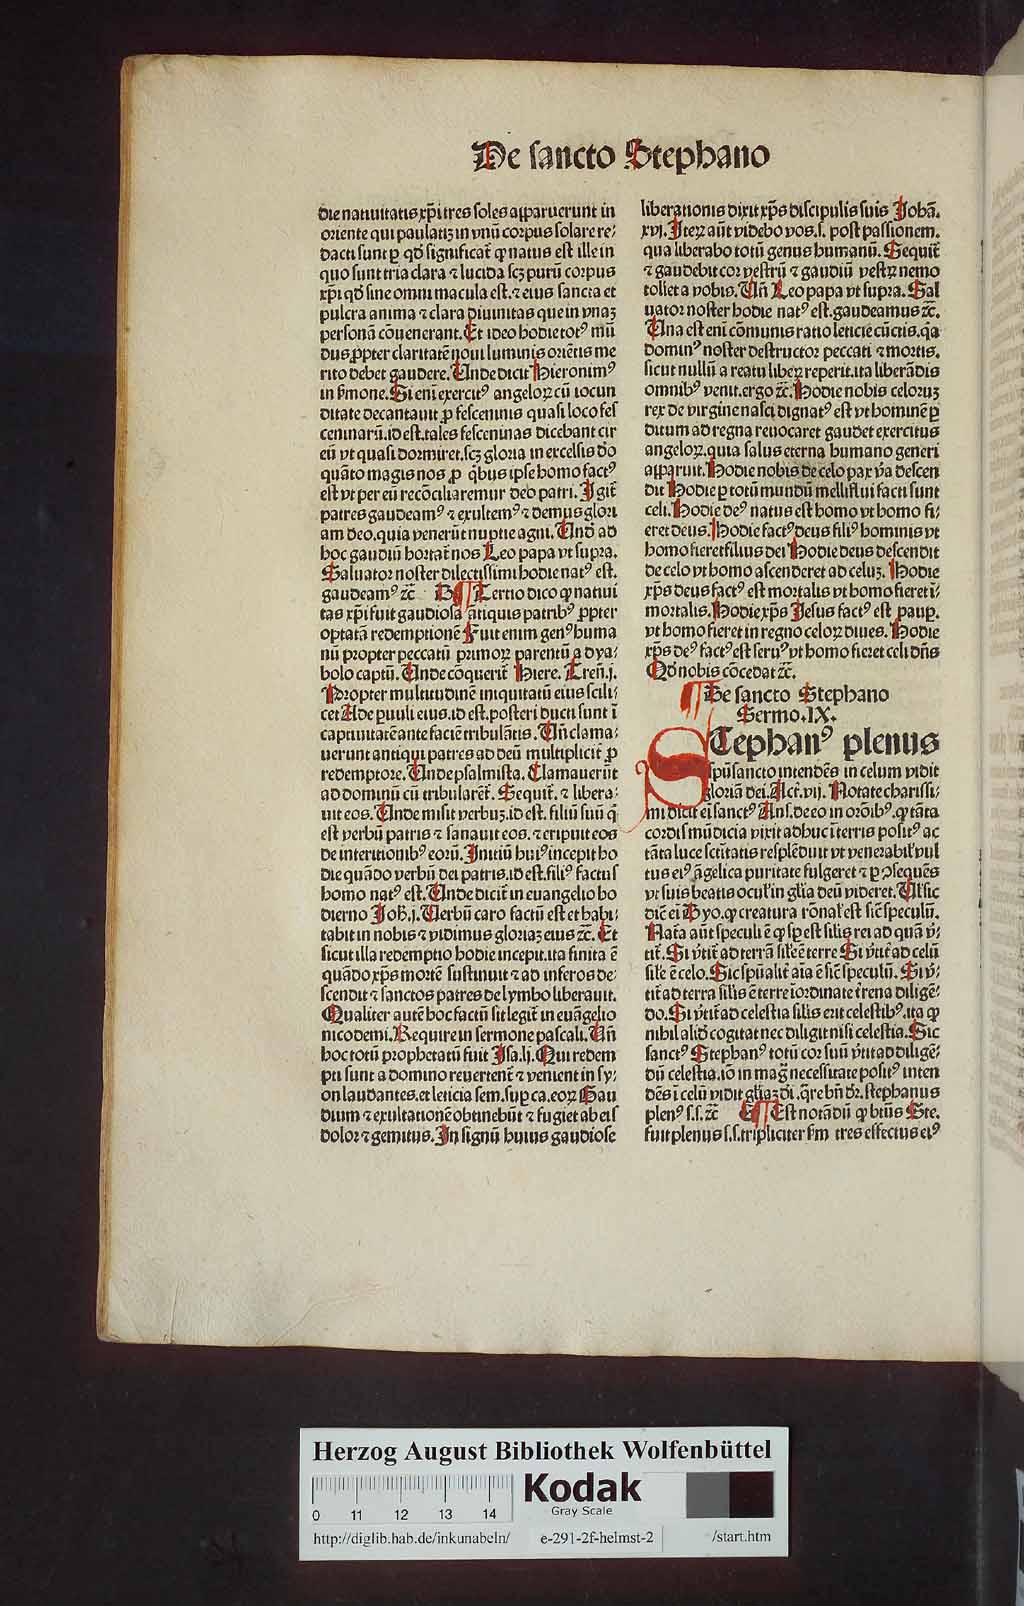 De sancto Stephano
die natiuitatis xp̄i tres soles apparuerunt in
oriente qui paulatiʒ in vnū corpus solare re⸗
dacti sunt ꝑ qd̓ significat᷑ ꝙ natus est ille in
quo sunt tria clara ⁊ lucida scꝫ purū corpus
xp̄i qd̓ sine omni macula est. ⁊ eius sancta et
pulcra anima ⁊ clara diuinitas que in vnaʒ
personā cōuenerant. Et ideo hodie totꝰ mū
dus ꝓpter claritatē noui luminis oriētis me
rito debet gaudere. Unde dicit Hieronimꝰ
in ẜmone. Si eni exercitꝰ angeloꝝ cū iocun
ditate decantauit ꝓ fesceninis quasi loco fes
ceninarū. id est. tales fesceninas dicebant cir
cū vt quasi dormiret. scꝫ gloria in excelsis deo
quāto magis nos ꝓ qͥbus ipse homo factꝰ
est vt per eū recōciliaremur deo patri. Igit᷑
patres gaudeamꝰ ⁊ exultemꝰ ⁊ demus glori
am deo. quia venerūt nuptie agni. Und̓ ad
hoc gaudiū hortat᷑ nos Leo papa vt supra.
Saluator noster dilectissimi hodie natꝰ est.
gaudeamꝰ ⁊c̄ B ¶ Tertio dico ꝙ natiui
tas xp̄i fuit gaudiosa ātiquis patribꝰ ꝓpter
optatā redemptionē Fuit enim genꝰ huma
nū propter peccatū primoꝝ parentū a dya⸗
bolo captū. Unde conquerit᷑ Hiere. Tren̄. j.
Propter multitudinē iniquitatū eius scili⸗
cet Ade ꝑuuli eius. id est. posteri ducti sunt ī
captiuitatē ante faciē tribulātis. Un̄ clama⸗
uerunt antiqui patres ad deū multiplicit᷑ ꝓ
redemptore. Unde psalmista. Clamauerūt
ad dominū cū tribularēt᷑. Sequit᷑. ⁊ libera⸗
uit eos. Unde misit verbuʒ. id est. filiū suū q̇
est verbū patris ⁊ sanauit eos. ⁊ eripuit eos
de interitionibꝰ eoꝝ. Initiū huiꝰ incepit ho
die quādo verbū dei patris. id est. filiꝰ factus
homo natꝰ est. Unde dicit᷑ in euangelio ho
dierno Joh̄. j. Verbū caro factū est et habi⸗
tabit in nobis ⁊ vidimus gloriaʒ eius ⁊c̄. Et
sicut illa redemptio hodie incepit. ita finita ē
quādo xp̄s mortē sustinuit ⁊ ad inferos de⸗
scendit ⁊ sanctos patres de lymbo liberauit.
Qualiter autē hoc factū sit legit᷑ in euāgelio
nicodemi. Require in sermone pascali. Un̄
hoc totū prophetatū fuit Isa. lj. Qui redem
pti sunt a domino reuertent᷑ ⁊ venient in sy⸗
on laudantes. et leticia sem. suꝑ ca. eoꝝ Gau
dium ⁊ exultationē obtinebūt ⁊ fugiet ab eis
dolor ⁊ gemitus. In signū huius gaudiose
liberationis dixit xp̄s discipulis suis Johā.
xvj. Iteꝝ aūt videbo vos. s. post passionem.
qua liberabo totū genus humanū. Sequit᷑
⁊ gaudebit cor vestrū ⁊ gaudiū vestꝝ nemo
tollet a vobis. Un̄ Leo papa vt supra. Sal
uator noster hodie natꝰ est. gaudeamus ⁊c̄.
Una est eni cōmunis ratio leticie cūctis. qͣa
dominꝰ noster destructor peccati ⁊ mortis.
sicut nullū a reatu libeꝝ reperit. ita liberādis
omnibꝰ venit. ergo ⁊c̄. Hodie nobis celoruʒ
rex de virgine nasci dignatꝰ est vt hominē ꝑ
ditum ad regna reuocaret gaudet exercitus
angeloꝝ. quia salus eterna humano generi
apparuit. Hodie nobis de celo pax v̓a descen
dit Hodie ꝑ totū mundū melliflui facti sunt
celi. Hodie deꝰ natus est homo vt homo fi⸗
eret deus. Hodie factꝰ deus filiꝰ hominis vt
homo fieret filius dei Hodie deus descendit
de celo vt homo ascenderet ad celuʒ. Hodie
xp̄s deus factꝰ est mortalis vt homo fieret ī⸗
mortalis. Hodie xp̄s Jesus factꝰ est pauꝑ.
vt homo fieret in regno celoꝝ diues. Hodie
xp̄s deꝰ factꝰ est seruꝰ vt homo fieret celi dn̄s
Qd̓ nobis cōcedat ⁊c̄.
¶ De sancto Stephano
Sermo. IX.
STephanꝰ plenus
spū sancto intendēs in celum vidit
gloriā dei. Act. vij. Notate charissi⸗
mi dicit ei sanctꝰ Ans. de eo in orōibꝰ. ꝙ tāta
cordis mūdicia vixit adhuc ī terris positꝰ ac
tāta luce sctītatis resplēduit vt venerabil' vul
tus eiꝰ āgelica puritate fulgeret ⁊ ꝑ ꝯsequēs
vt suis beatis ocul' in gl'ia deū videret. Ul' sic
dic̄ ei Dyo. ꝙ creatura rōnal' est sic̄ speculū.
Nata aūt speculi ē ꝙ sp̄ est silis rei ad quā v̓⸗
tit᷑. Si v̓tit᷑ ad terrā sil'e ē terre Si v̓tit᷑ ad celū
sil'e ē celo. Sic spūalit᷑ aīa ē sic̄ speculū. Si v̓⸗
tit᷑ ad terra silis ē terre īordinate t᷑rena diligē⸗
do. Si v̓tit᷑ ad celestia silis erit celestibꝰ. ita ꝙ
nihil aliqd̓ cogitat nec diligit nisi celestia. Sic
sanctꝰ Stephanꝰ totū cor suū v̓tit ad diligē⸗
dū celestia. iō in mag̅ necessitate positꝰ inten
dēs ī celū vidit gl'iaʒ di. q̄re bn̄ dr̄. stephanus
plenꝰ s. s. ⁊c̄ C ¶ Est notādū ꝙ btūs Ste.
fuit plenus s. s. tripliciter ẜm tres effectus eiꝰ
Herzog August Bibliothek Wolfenbüttel
Kodak
Gray Scale
0 11 12 13 14
http://diglib.hab.de/inkunabeln/ e-291-2f-helmst-2 /start.htm